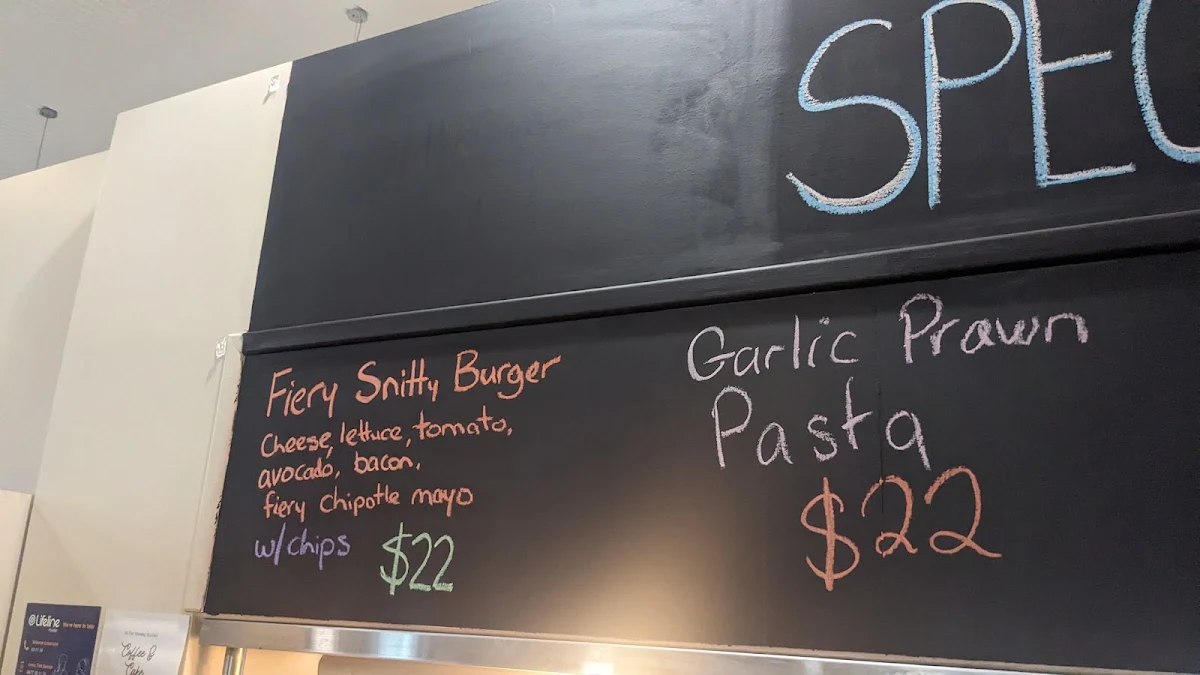 SPEC
Fiery Snitty Burger
Cheese, lettuce, tomato,
avocado, bacon,
fiery chipotle mayo
w/chips $22
Garlic Prawn
Pasta
$22
Lifeline
Coffee &
Cake